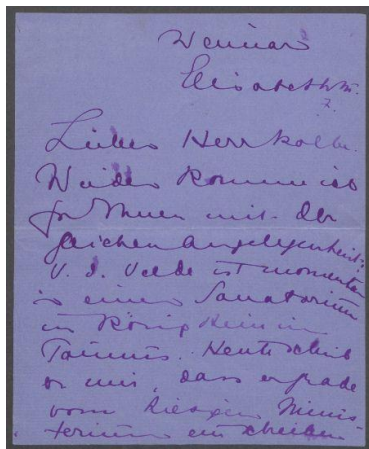 Weimar
Elisabethstr.
2.
Lieber Herr Kolbe.
Wieder komme ich
zu Ihnen mit der
gleichen Angelegenheit:
V. d. Velde ist momentan
in einem Sanatorium
in Königstein im
Taunus. Heute schrieb
er mir, dass er grade
vom hiesigen Minis-
terium ein Schreiben